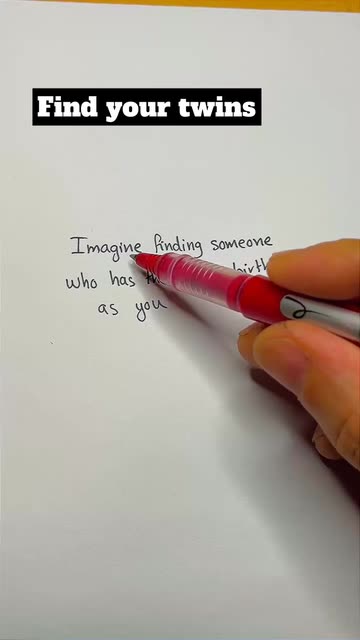 Find your twins
Imagine finding someone
who has birth
as you